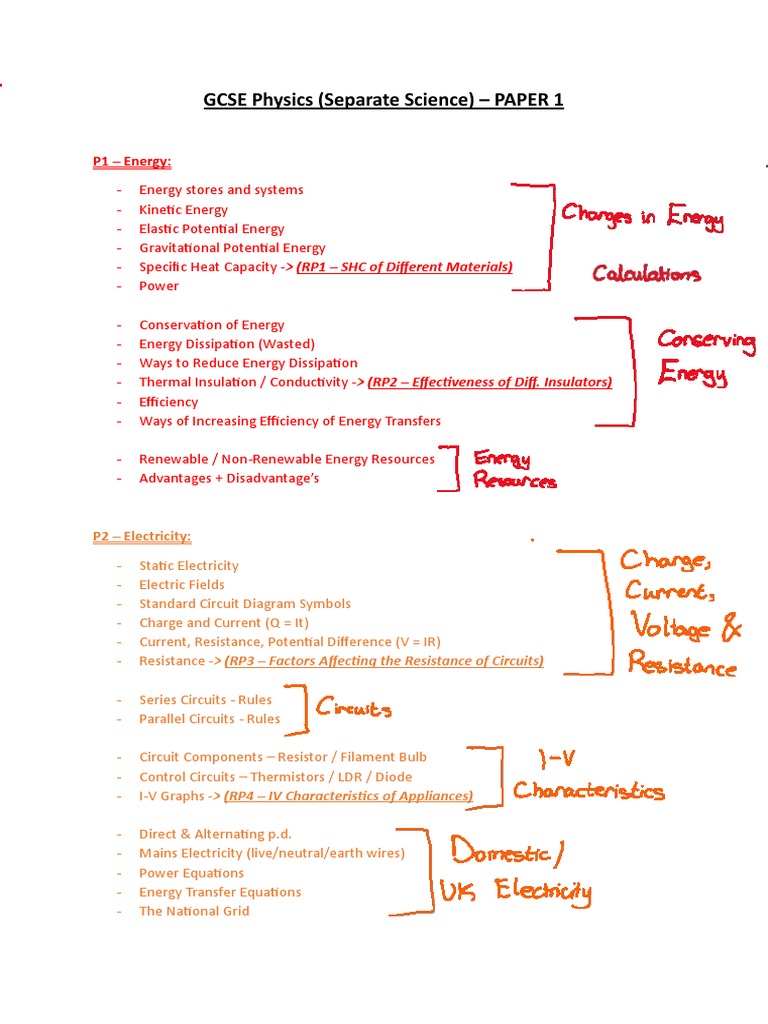 GCSE Physics (Separate Science) – PAPER 1
P1 – Energy:
- Energy stores and systems
- Kinetic Energy
- Elastic Potential Energy
- Gravitational Potential Energy
- Specific Heat Capacity -> (RP1 – SHC of Different Materials)
- Power
Changes in Energy
Calculations
- Conservation of Energy
- Energy Dissipation (Wasted)
- Ways to Reduce Energy Dissipation
- Thermal Insulation / Conductivity -> (RP2 – Effectiveness of Diff. Insulators)
- Efficiency
- Ways of Increasing Efficiency of Energy Transfers
Conserving
Energy
- Renewable / Non-Renewable Energy Resources
- Advantages + Disadvantage’s
Energy
Resources
P2 – Electricity:
- Static Electricity
- Electric Fields
- Standard Circuit Diagram Symbols
- Charge and Current (Q = It)
- Current, Resistance, Potential Difference (V = IR)
- Resistance -> (RP3 – Factors Affecting the Resistance of Circuits)
Charge,
Current,
Voltage &
Resistance
- Series Circuits - Rules
- Parallel Circuits - Rules
Circuits
- Circuit Components – Resistor / Filament Bulb
- Control Circuits – Thermistors / LDR / Diode
- I-V Graphs -> (RP4 – IV Characteristics of Appliances)
I-V
Characteristics
- Direct & Alternating p.d.
- Mains Electricity (live/neutral/earth wires)
- Power Equations
- Energy Transfer Equations
- The National Grid
Domestic /
UK Electricity